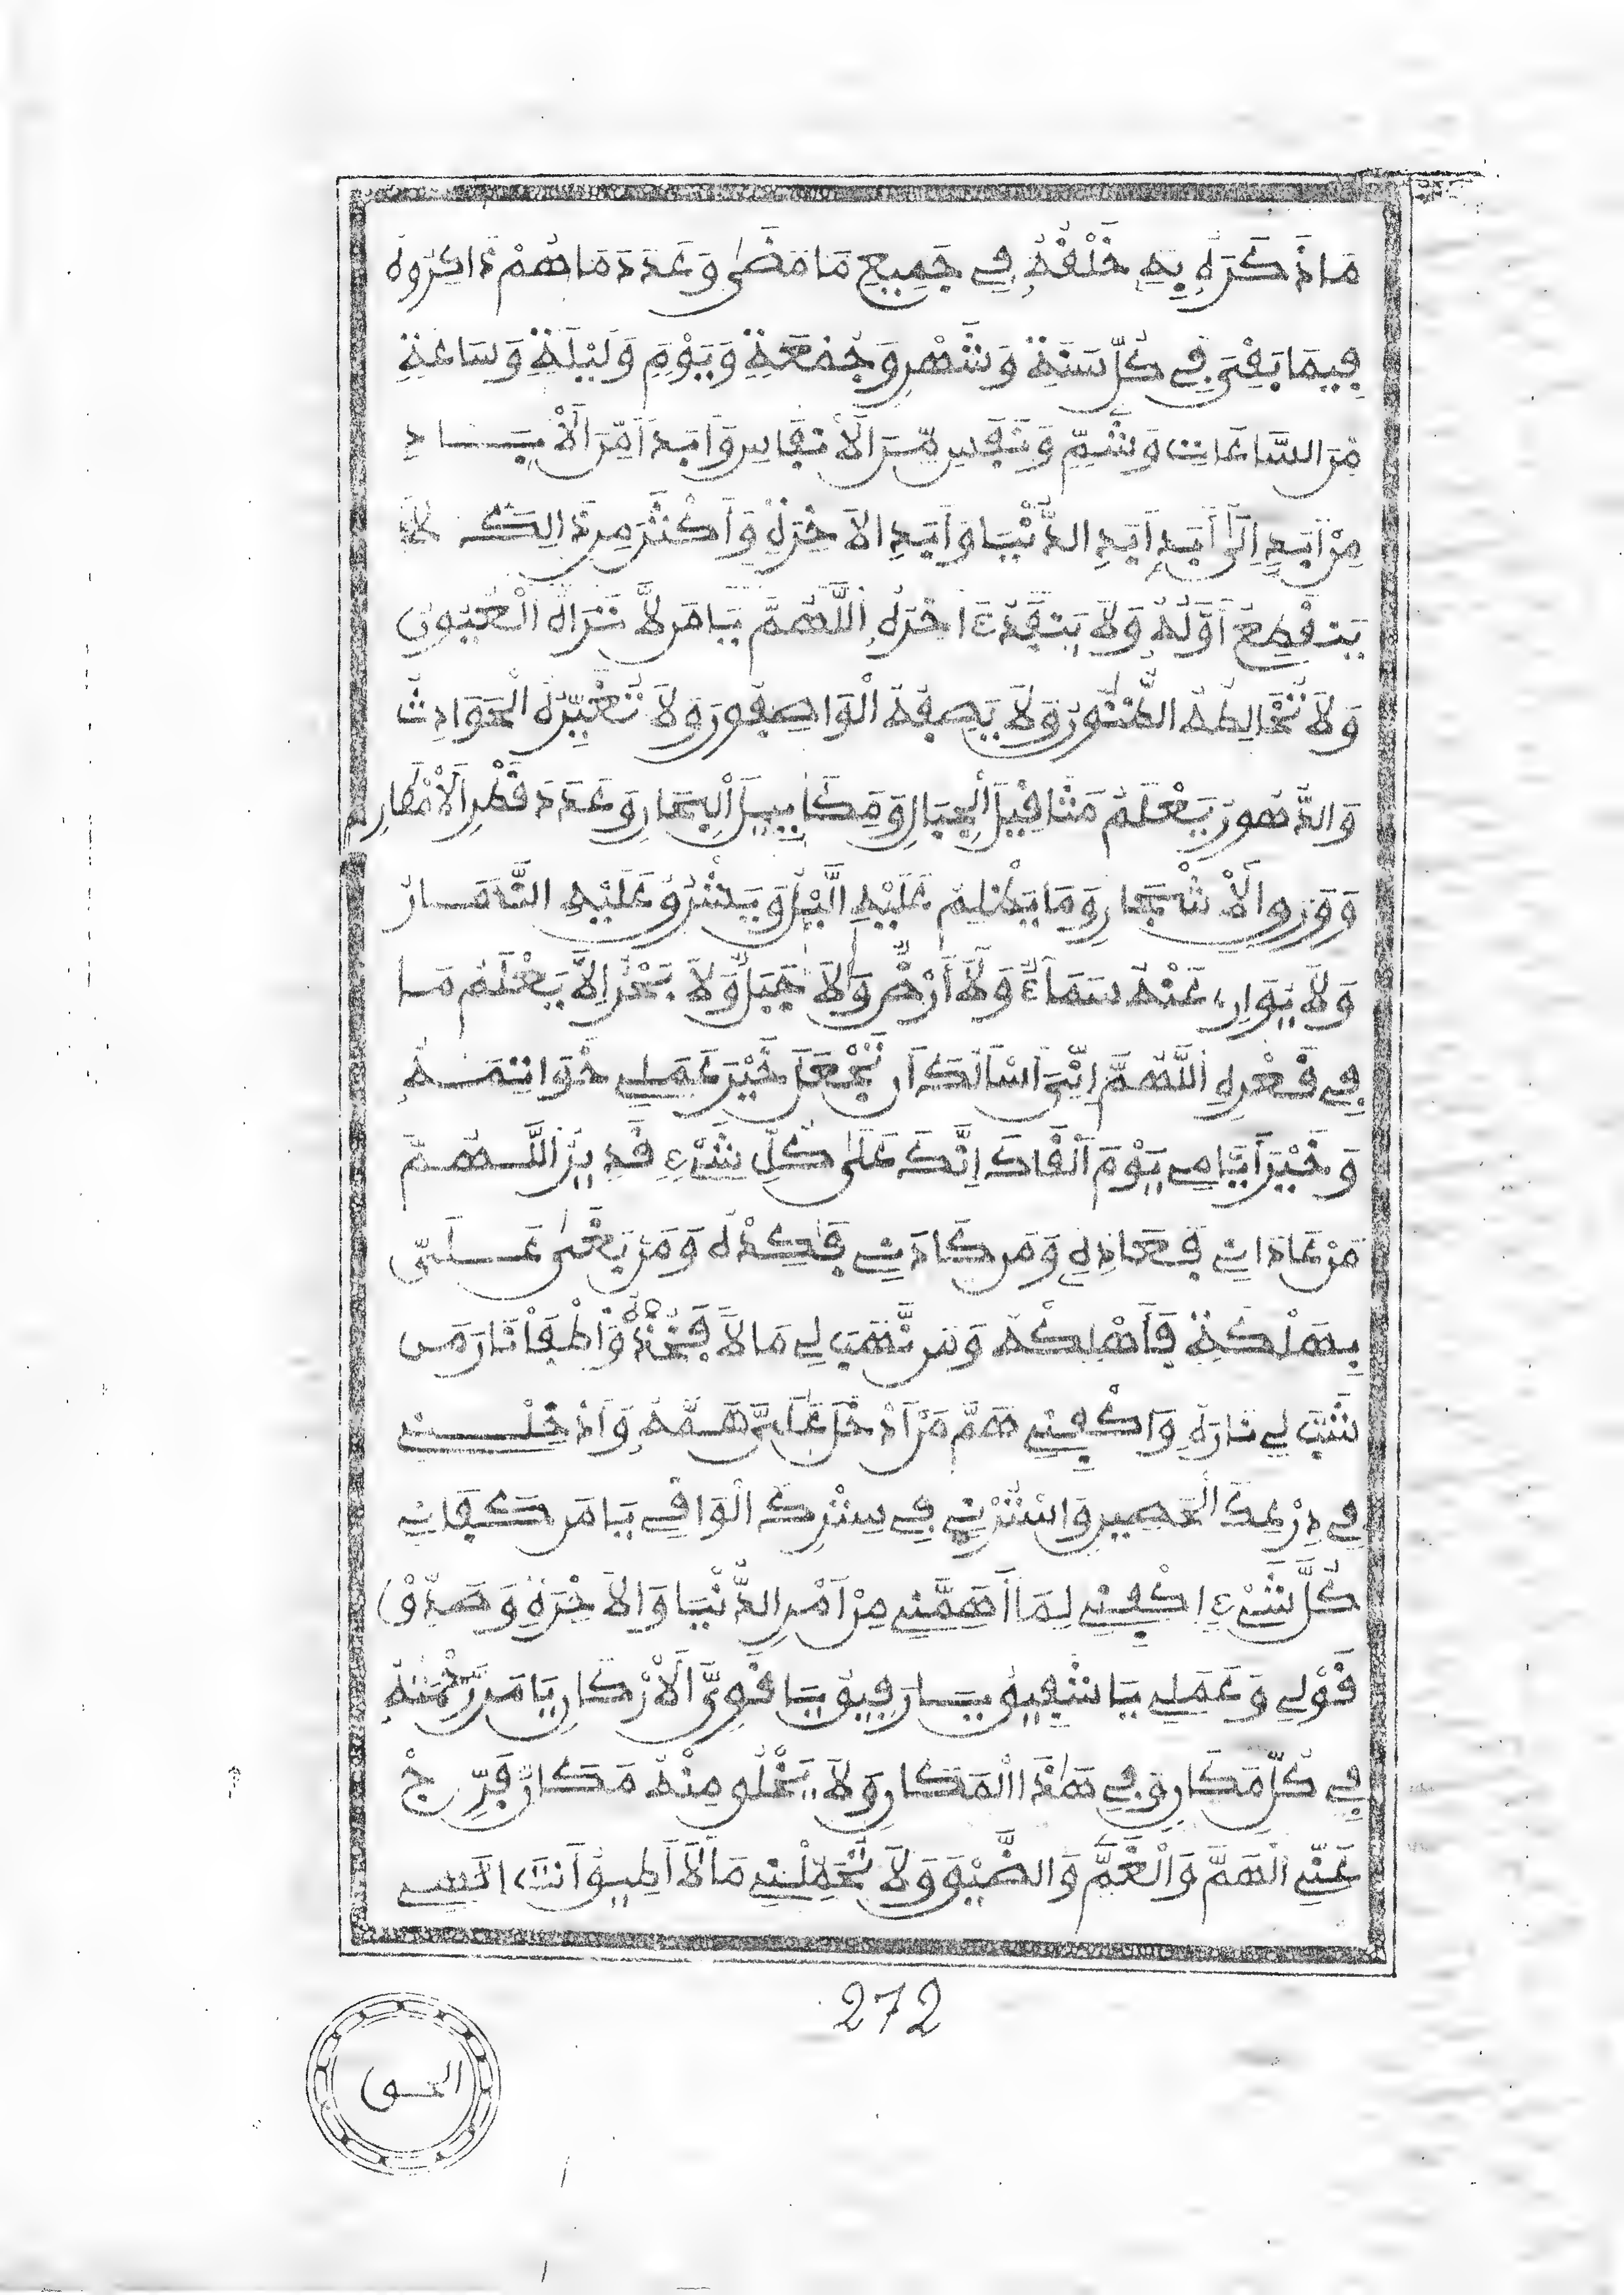 مَا ذَكَرَهُ بِهِ خَلْقُهُ فِي جَمِيعِ مَا مَضَىٰ وَعَدَدَ مَا هُمْ ذَاكِرُوهُ
فِيمَا بَقِيَ فِي كُلِّ سَنَةٍ وَشَهْرٍ وَجُمُعَةٍ وَيَوْمٍ وَلَيْلَةٍ وَسَاعَةٍ
مِّنَ السَّاعَاتِ وَشَمٍّ وَنَفَسٍ مِّنَ الْأَنْفَاسِ وَأَبَدًا مِّنَ الْأَبَـــادِ
مِنْ أَبَدٍ إِلَىٰ أَبَدٍ أَبَدِ الدُّنْيَا وَأَبَدِ الْآخِرَةِ وَأَكْثَرَ مِن ذَالِكَ لَا
يَنقَطِعُ أَوَّلُهُ وَلَا يَنفَدُ ءَاخِرُهُ اللَّهُمَّ يَا مَن لَّا تَرَاهُ الْعُيُونُ
وَلَا تُخَالِطُهُ الظُّنُونُ وَلَا يَصِفُهُ الْوَاصِفُونَ وَلَا تُغَيِّرُهُ الْحَوَادِثُ
وَالدُّهُورُ يَعْلَمُ مَثَاقِيلَ الْجِبَالِ وَمَكَايِيلَ الْبِحَارِ وَعَدَدَ قَطْرِ الْأَمْطَارِ
وَوَرَقِ الْأَشْجَارِ وَمَا يُظْلِمُ عَلَيْهِ الَّيْلُ وَيُشْرِقُ عَلَيْهِ النَّهَـــارُ
وَلَا يُوَارِي عَنْهُ سَمَاءٌ وَلَا أَرْضٌ وَلَا جَبَلٌ وَلَا بَحْرٌ إِلَّا يَعْلَمُ مَـا
فِي قَعْرِهِ اللَّهُمَّ إِنِّي أَسْأَلُكَ أَن تَجْعَلَ خَيْرَ عَمَلِي خَوَاتِمَـــهُ
وَخَيْرَ أَيَّامِي يَوْمَ أَلْقَاكَ إِنَّكَ عَلَىٰ كُلِّ شَيْءٍ قَدِيرٌ اللَّـــهُـمَّ
مَنْ عَادَانِي فَعَادِهِ وَمَن كَادَنِي فَكِدْهُ وَمَنْ بَغَىٰ عَـــلَيَّ
بِهَلَكَةٍ فَأَهْلِكْهُ وَمَن نَّهَبَ لِي مَالًا فَخُذْهُ وَأَطْفِأْ نَارَ مَن
شَبَّ لِي نَارَهُ وَاكْفِنِي هَمَّ مَنْ أَدْخَلَ عَلَيَّ هَـمَّهُ وَأَدْخِلْـــنِي
فِي دِرْعِكَ الْحَصِينِ وَاسْتُرْنِي فِي سِتْرِكَ الْوَاقِي يَا مَن كَفَانِي
كُلَّ شَيْءٍ اكْفِنِي لِمَا أَهَمَّنِي مِنْ أَمْرِ الدُّنْيَا وَالْآخِرَةِ وَصَدِّقْ
قَوْلِي وَعَمَلِي يَا شَفِيقُ يَـــا رَفِيقُ يَا قَوِيَّ الْأَرْكَانِ يَا مَن رَّحْمَتُهُ
فِي كُلِّ مَكَانٍ وَفِي هَٰذَا الْمَكَانِ وَلَا يَخْلُو مِنْهُ مَكَانٌ فَرِّجْ
عَنِّي الْهَمَّ وَالْغَمَّ وَالضِّيقَ وَلَا تُحَمِّلْنِي مَا لَا أُطِيقُ أَنتَ إِلَٰهِي
272
الحـق